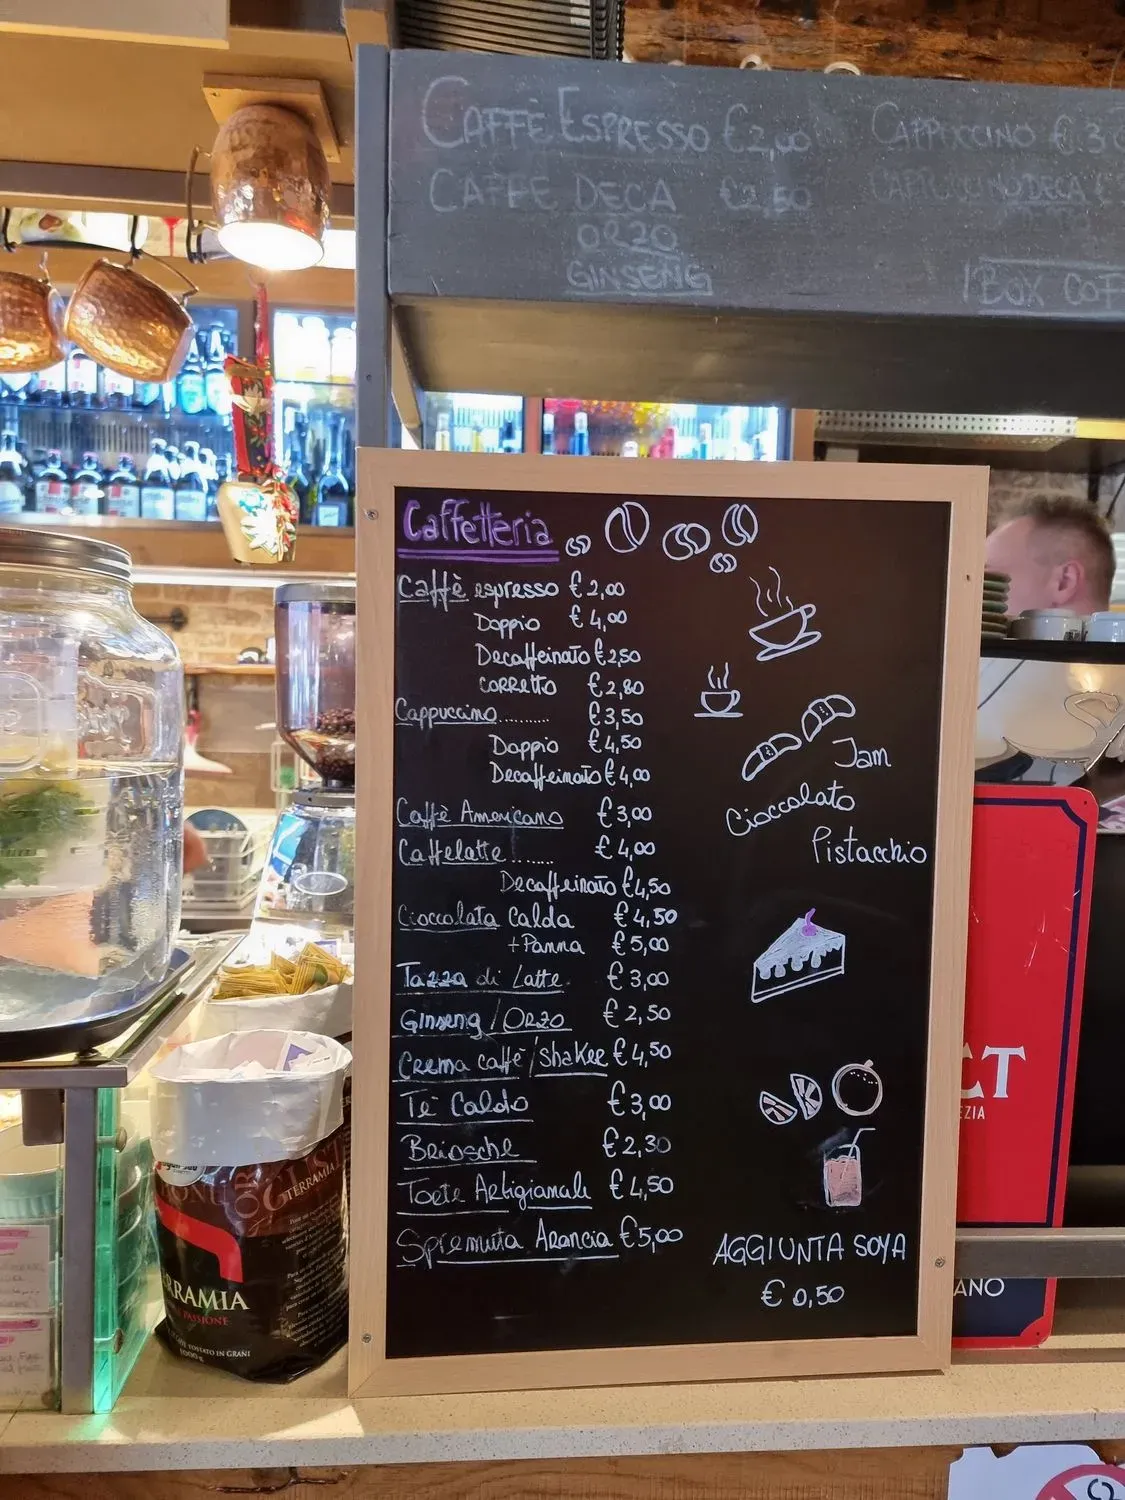 CAFFÈ ESPRESSO €2,00
CAFFE DECA €2,50
ORZO
GINSENG
CAPPUCCINO € 3
CAPPUCCINO DECA
BOX COF
Caffetteria
Caffè espresso € 2,00
Doppio € 4,00
Decaffeinato € 2,50
CORRETTO € 2,80
Cappuccino.......... € 3,50
Doppio € 4,50
Decaffeinato € 4,00
Caffè Americano € 3,00
Caffelatte ....... € 4,00
Decaffeinato €4,50
Cioccolata Calda € 4,50
+Panna € 5,00
Tazza di Latte € 3,00
Ginseng / ORZO € 2,50
Crema caffè / Shaker € 4,50
Tè Caldo € 3,00
Briosche € 2,30
Torte Artigianali € 4,50
Spremuta Arancia € 5,00
Jam
Cioccolato
Pistacchio
AGGIUNTA SOYA
€ 0,50
CT
EZIA
ANO
TERRAMIA
RRAMIA
PASSIONE
TOSTATO IN GRANI
1000 g